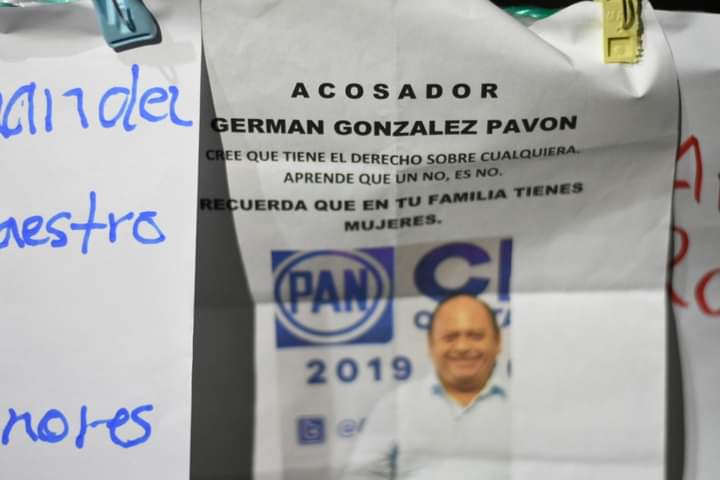 ACOSADOR
GERMAN GONZALEZ PAVON
CREE QUE TIENE EL DERECHO SOBRE CUALQUIERA.
APRENDE QUE UN NO, ES NO.
RECUERDA QUE EN TU FAMILIA TIENES
MUJERES.
PAN
2019
aestro
nores